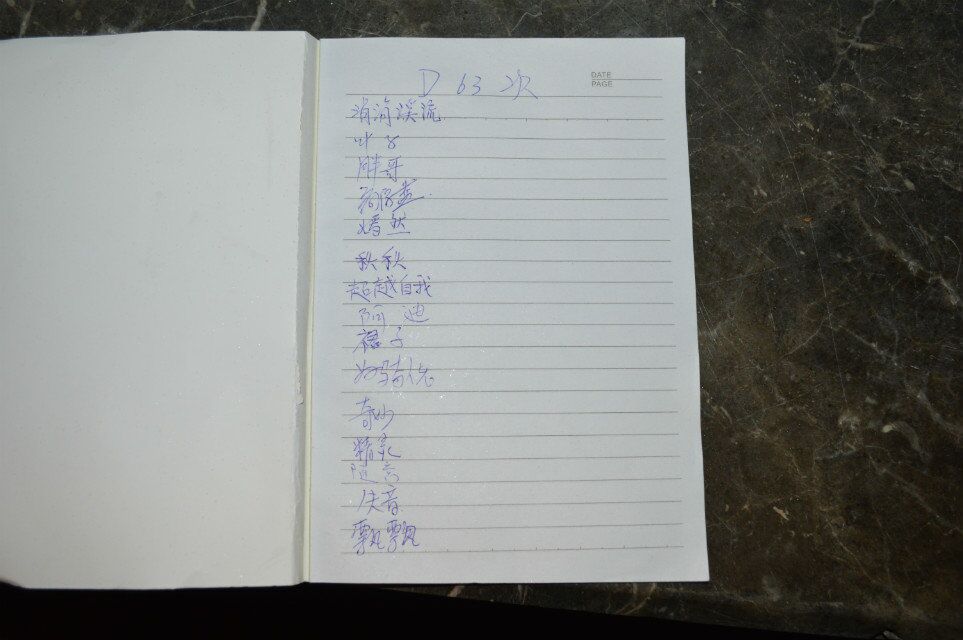 D 63 次
DATE
PAGE
涓涓溪流
叶子
胖哥
嫣然
秋秋
超越自我
阿迪
裙子
奇妙
精灵
随言
佚音
飘飘